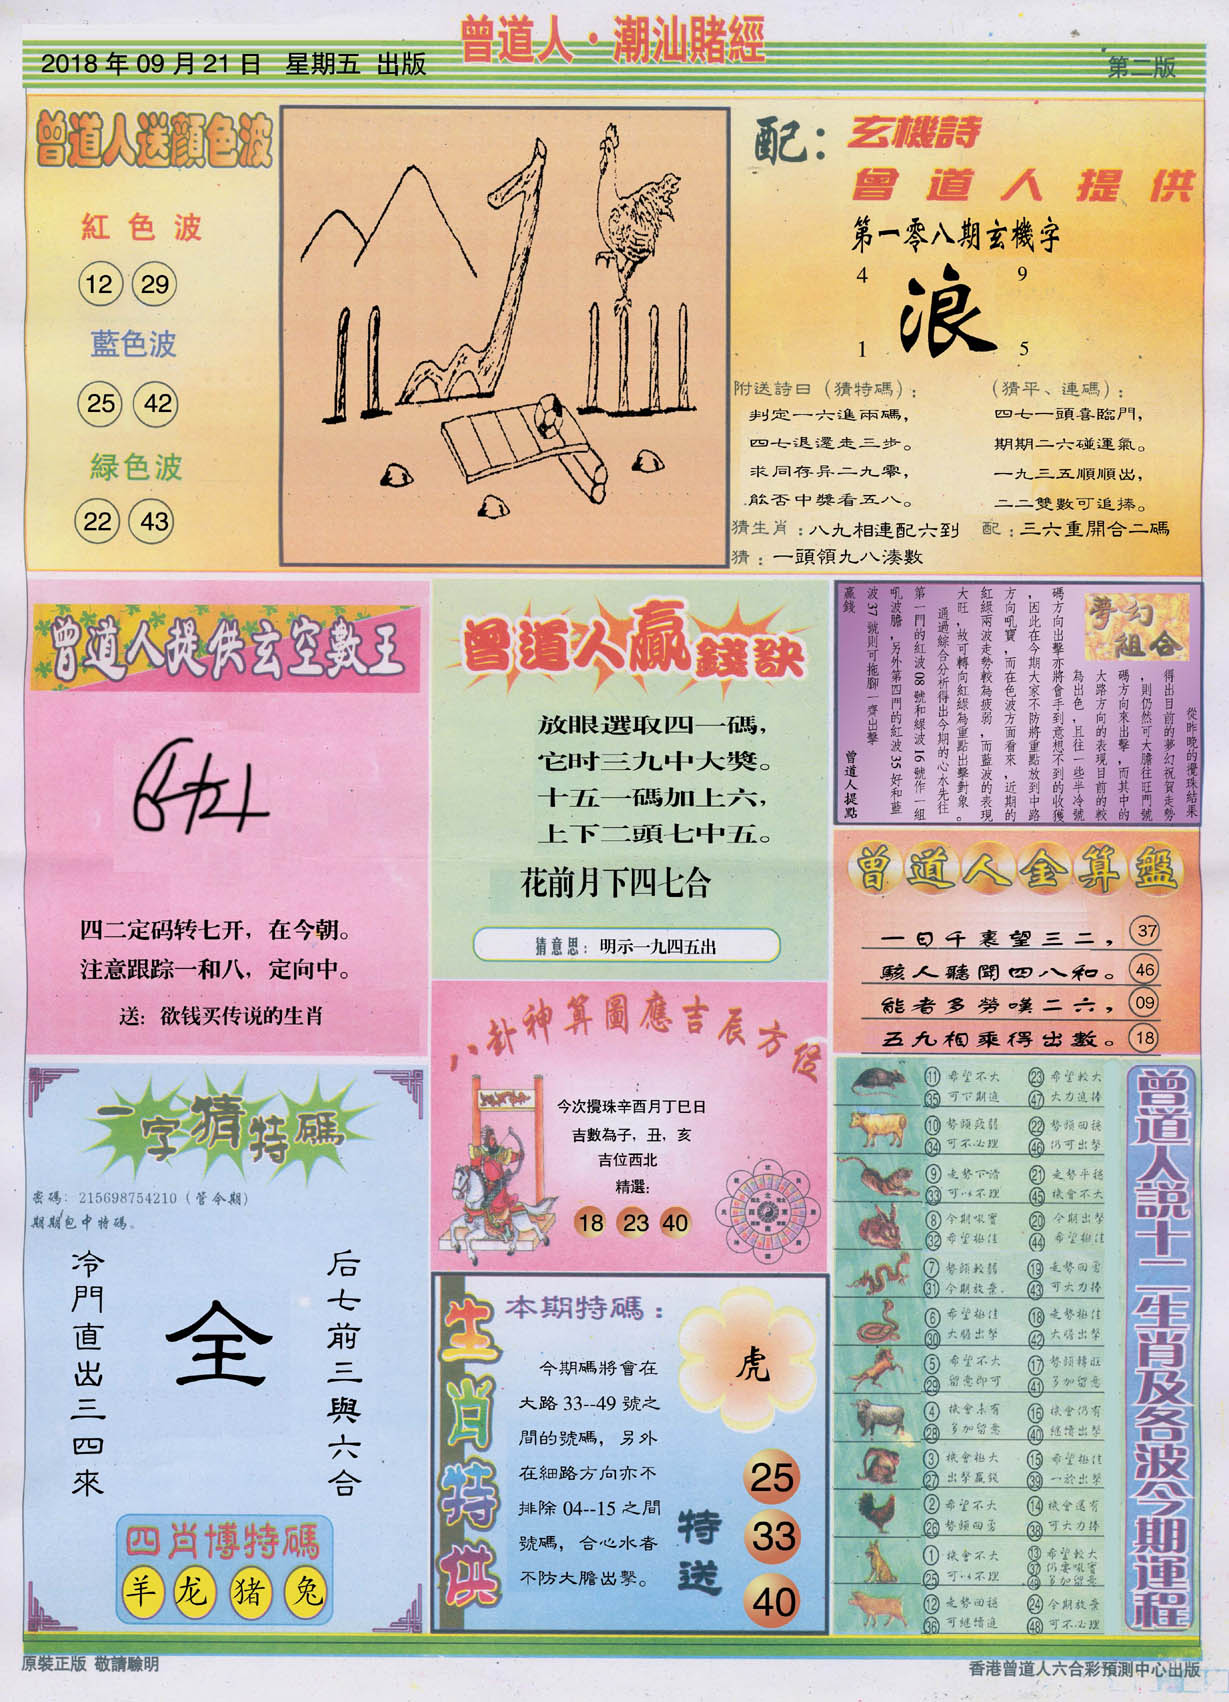 曾道人·潮汕賭經
2018 年 09 月 21 日 星期五 出版
第二版
曾道人送顏色波
紅色波
12 29
藍色波
25 42
緑色波
22 43
配：玄機詩
曾道人提供
第一零八期玄機字
4 9
浪
1 5
附送詩曰（猜特碼）：
判定一六進兩碼，
四七退還走三步。
求同存异二九零，
能否中獎看五八。
（猜平、連碼）：
四七一頭喜臨門，
期期二六碰運氣。
一九三五順順出，
二二雙數可追捧。
猜生肖：八九相連配六到
配：三六重開合二碼
猜：一頭領九八湊數
曾道人提供玄空數王
四二定码转七开，在今朝。
注意跟踪一和八，定向中。
送：欲钱买传说的生肖
曾道人赢錢訣
放眼選取四一碼，
它时三九中大獎。
十五一碼加上六，
上下二頭七中五。
花前月下四七合
猜意思：明示一九四五出
夢幻組合
從昨晚的攪珠結果
得出目前的夢幻祝賀走勢
，則仍然可大膽往旺門號
碼方向來出擊，而其中的
大路方向的表現目前的較
為出色，且往一些半冷號
碼方向出擊亦將會手到意想不到的收獲
，因此在今期大家不防將重點放到中路
方向吼寶，而在色波方面看來，近期的
紅綠兩波走勢較為疲弱，而藍波的表現
大旺，故可轉向紅綠為重點出擊對象。
通過綜合分析得出今期的心水先往
第一門的紅波08號和綠波16號作一組
吼波膽，另外第四門的紅波35好和藍
波37號則可拖腳一齊出擊
贏錢
曾道人提點
曾道人金算盤
一日千裏望三二， 37
駭人聽聞四八和。 46
能者多勞嘆二六， 09
五九相乘得出數。 18
八卦神算圖應吉辰方位
今次攪珠辛酉月丁巳日
吉數為子，丑，亥
吉位西北
精選：
18 23 40
一字猜特碼
密碼：215698754210（管令期）
期期包中特碼。
冷門直出三四來
全
后七前三與六合
四肖博特碼
羊 龙 猪 兔
生肖特供
本期特碼：
虎
今期碼將會在
大路 33--49 號之
間的號碼，另外
在細路方向亦不
排除 04--15 之間
號碼，合心水者
不防大膽出擊。
特送
25
33
40
曾道人說十二生肖及各波今期運程
11 希望不大 23 希望較大
35 可下期追 47 大力追捧
10 勢頭疲弱 22 勢頭回穩
34 可不必理 46 仍可出擊
9 走勢下滑 21 走勢平穩
33 可以不理 45 機會不大
8 今期吼寶 20 今期出擊
32 希望極佳 44 希望極佳
7 勢頭較弱 19 走勢回勇
31 今期放棄 43 可大力捧
6 希望極佳 18 走勢極佳
30 大膽出擊 42 大膽出擊
5 希望不大 17 勢頭轉旺
29 留意即可 41 多加留意
4 機會未有 16 機會仍有
28 多加留意 40 繼續出擊
3 機會極大 15 希望極佳
27 出擊贏錢 39 一於出擊
2 希望不大 14 機會還有
26 勢頭回勇 38 可大力捧
1 機會不大 13 希望較大
25 可以不理 37 仍要吼實
49 多加留意
12 走勢回穩 24 今期放棄
36 可繼續追 48 可不必理
原裝正版 敬請驗明
香港曾道人六合彩預測中心出版